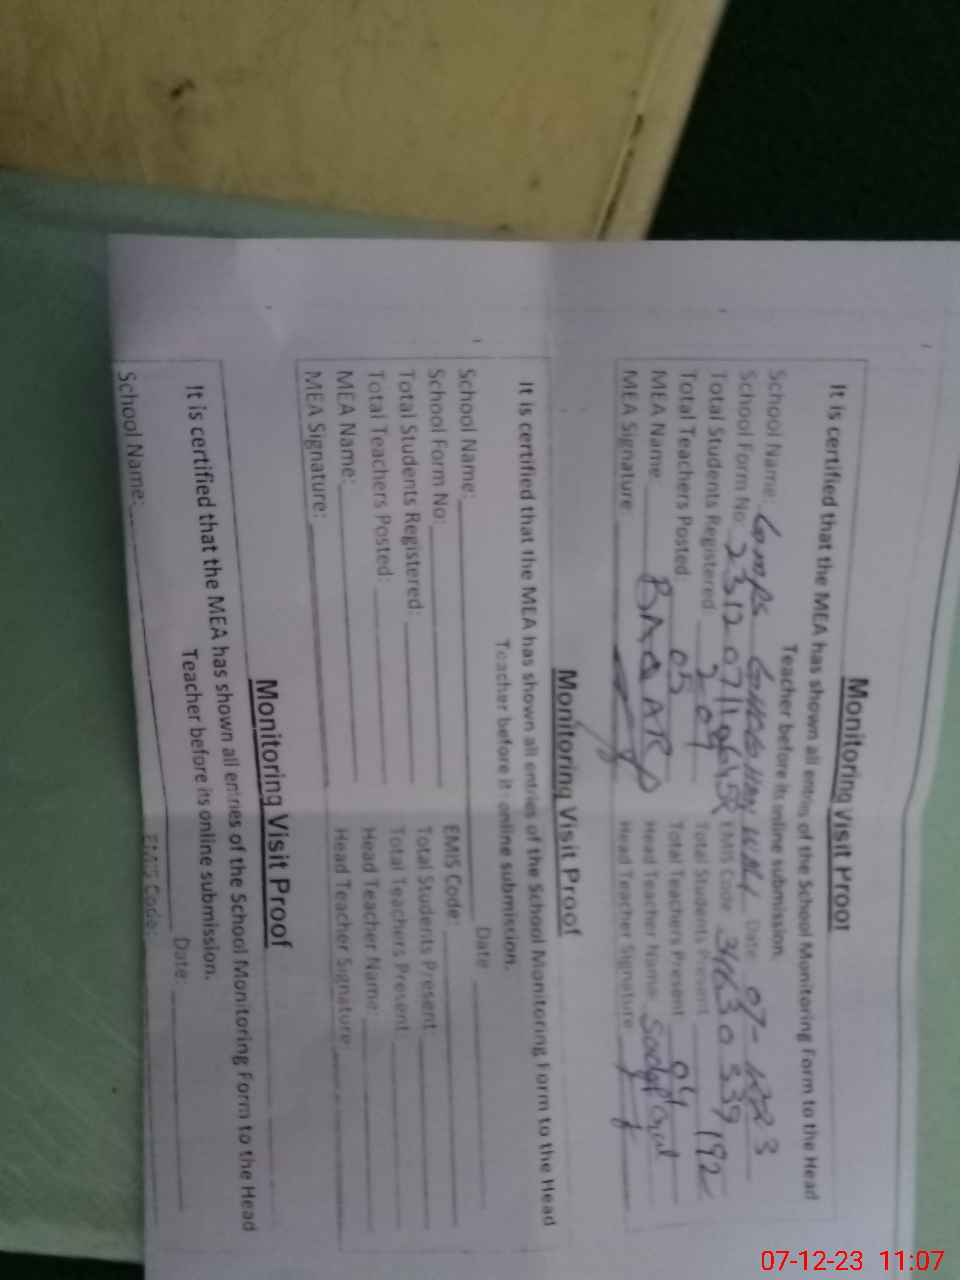 Monitoring Visit Proof
It is certified that the MEA has shown all entries of the School Monitoring Form to the Head
Teacher before its online submission.
School Name: Date
School Form No: EMIS Code
Total Students Registered 209 Total Students Present 192
Total Teachers Posted: 05 Total Teachers Present 04
MEA Name BAQAR Head Teacher Name
MEA Signature Head Teacher Signature
Monitoring Visit Proof
It is certified that the MEA has shown all entries of the School Monitoring Form to the Head
Teacher before it online submission.
School Name: Date
School Form No: EMIS Code:
Total Students Registered: Total Students Present:
Total Teachers Posted: Total Teachers Present
MEA Name: Head Teacher Name:
MEA Signature: Head Teacher Signature:
Monitoring Visit Proof
It is certified that the MEA has shown all entries of the School Monitoring Form to the Head
Teacher before its online submission.
School Name: Date:
EMIS Code:
07-12-23 11:07